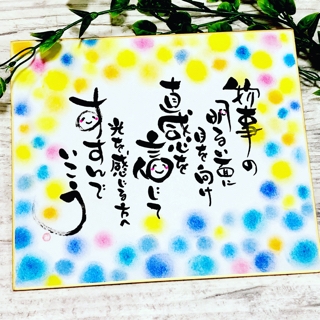 物事の
明るい面に
目を向け
直感を
信じて
光を感じる方へ
すすんで
いこう